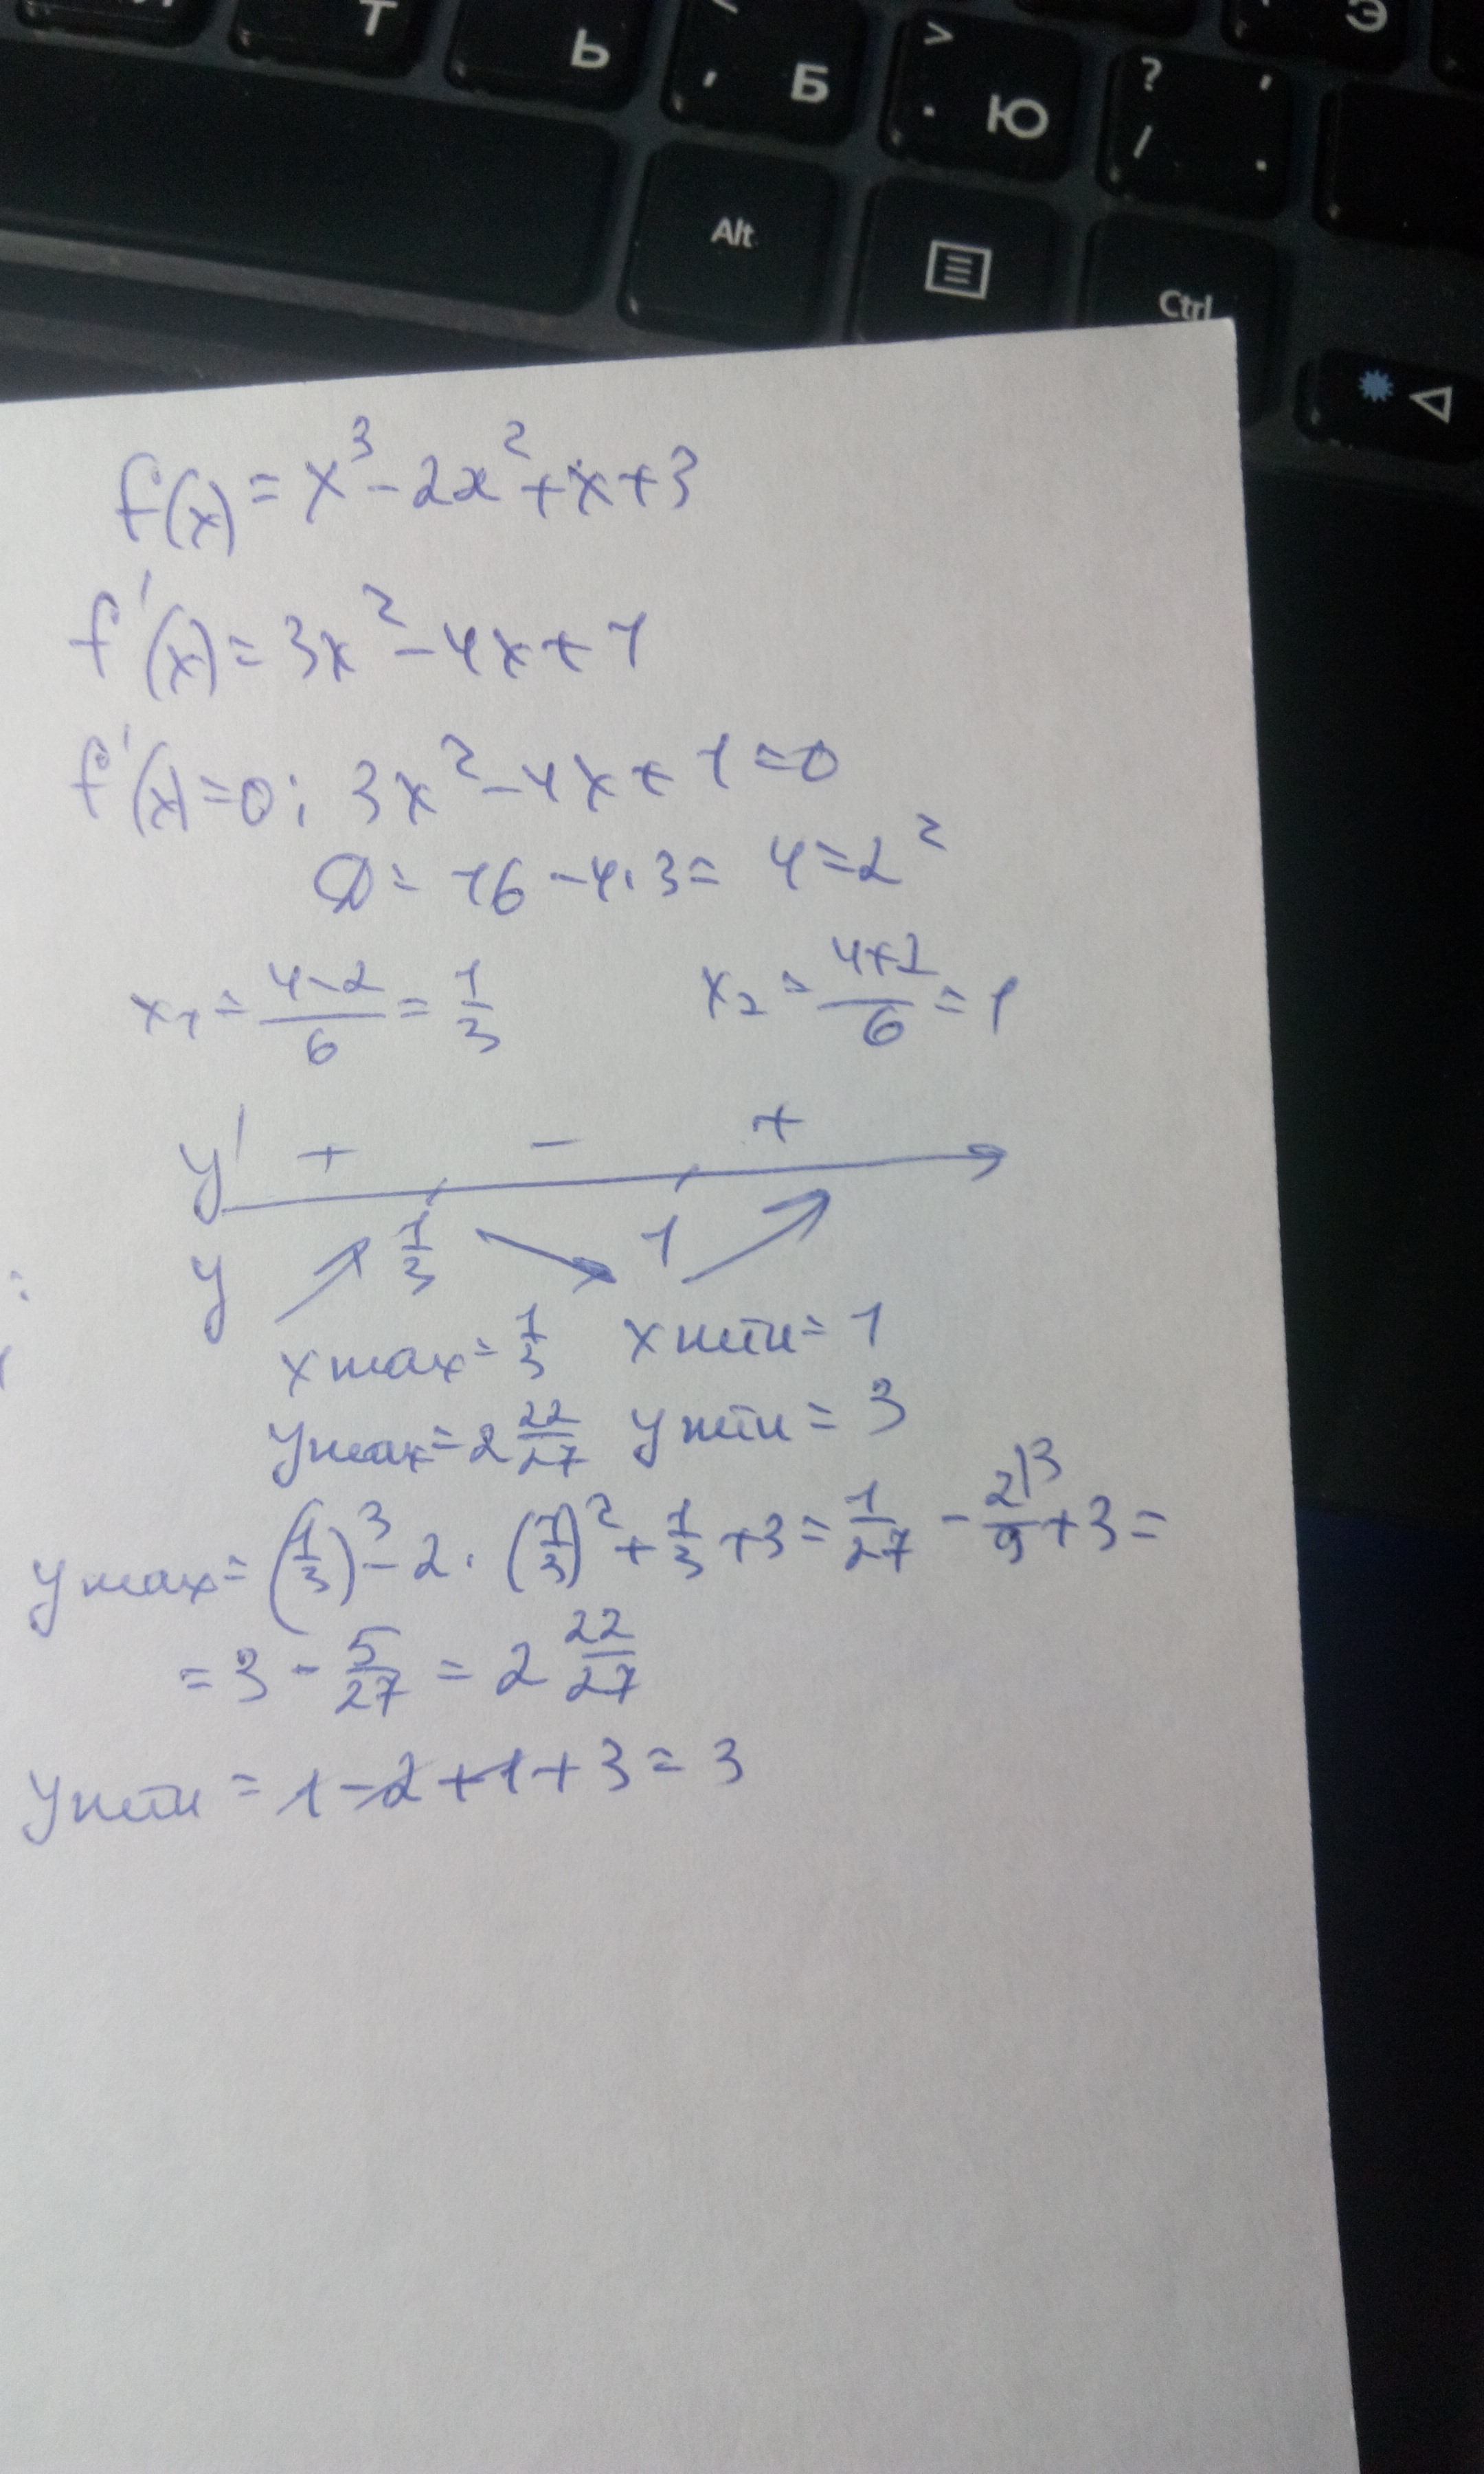 Т
Ь
, Б
> . Ю
? / , .
Э
Alt
Ctrl
f(x) = x³ - 2x² + x + 3
f'(x) = 3x² - 4x + 1
f'(x) = 0; 3x² - 4x + 1 = 0
D = 16 - 4·3 = 4 = 2²
x₁ = (4-2)/6 = 1/3 x₂ = (4+2)/6 = 1
y' + - +
y 1/3 1
x max = 1/3 x min = 1
y max = 2 22/27 y min = 3
y max = (1/3)³ - 2·(1/3)² + 1/3 + 3 = 1/27 - 2/9 + 3 =
= 3 - 5/27 = 2 22/27
y min = 1 - 2 + 1 + 3 = 3